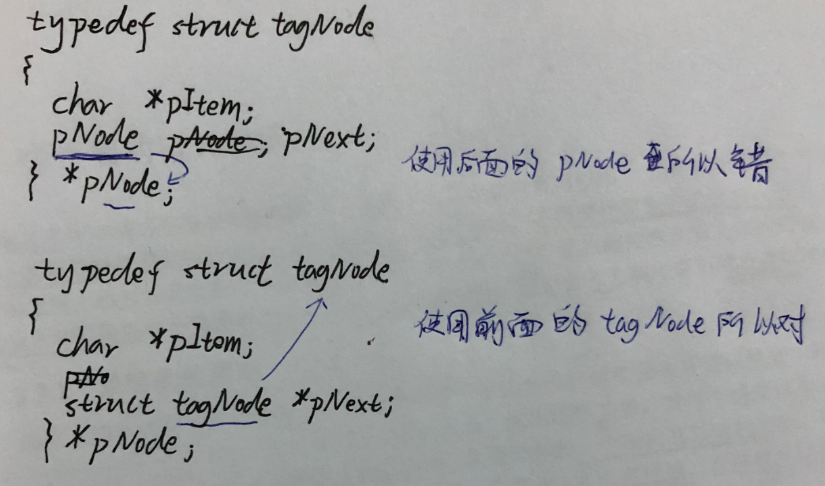 typedef struct tagNode
{
char *pItem;
pNode pNext;
} *pNode;
使用后面的 pNode 所以错
typedef struct tagNode
{
char *pItem;
struct tagNode *pNext;
} *pNode;
使用前面的 tagNode 所以对